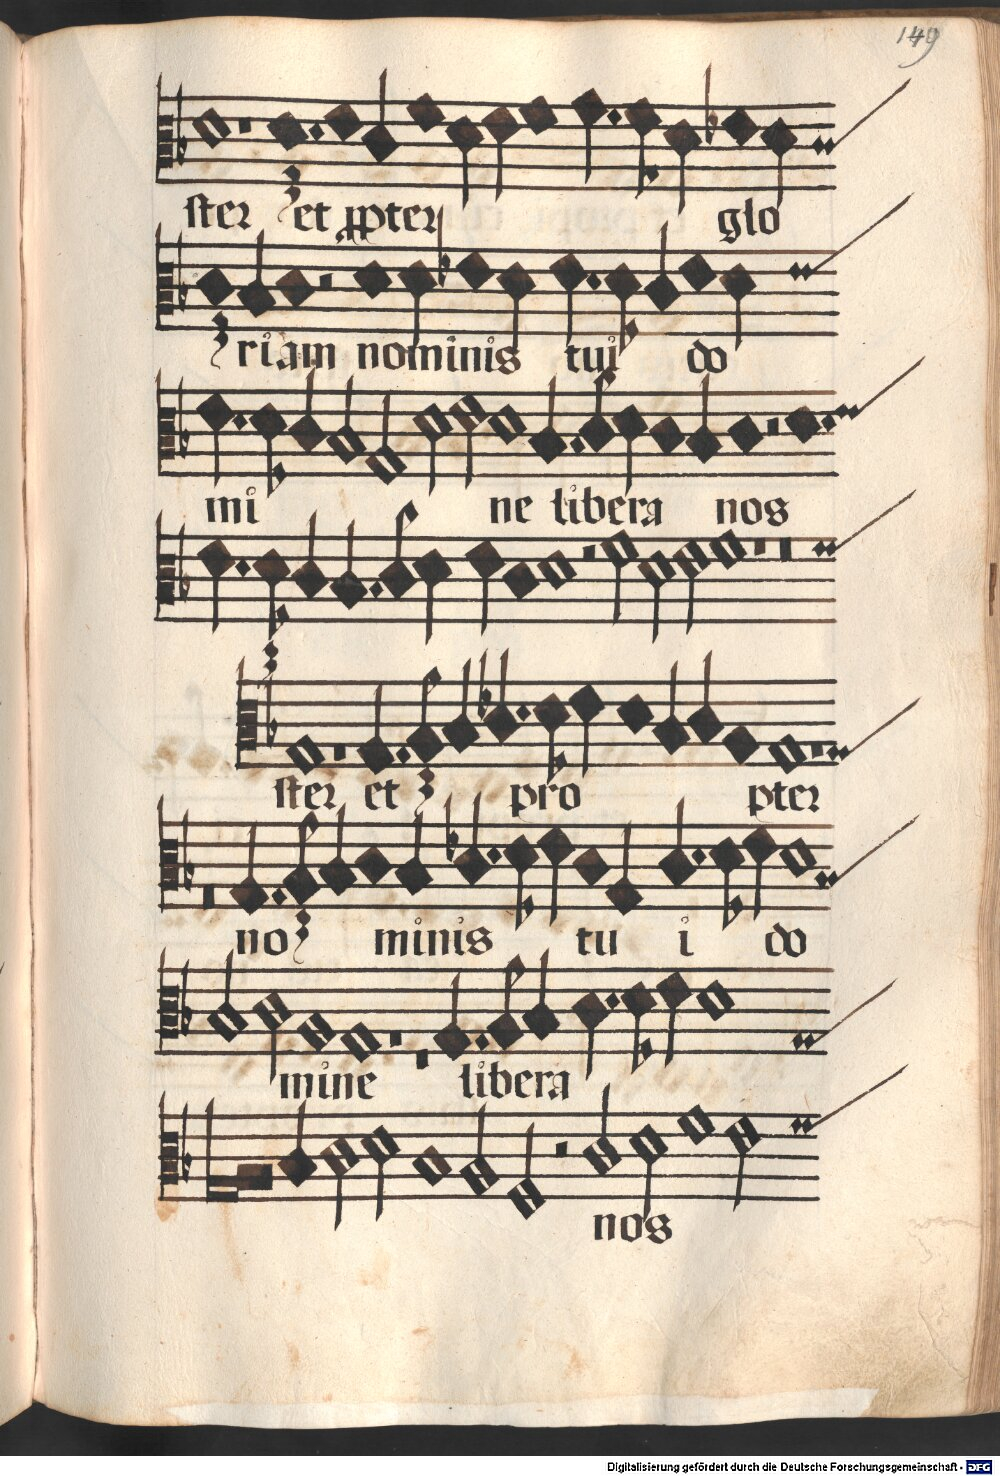 149
ster et ꝓpter glo
riam nominis tui do
mi ne libera nos
ster et pro pter
no minis tu i do
mine libera
nos
Digitalisierung gefördert durch die Deutsche Forschungsgemeinschaft - DFG